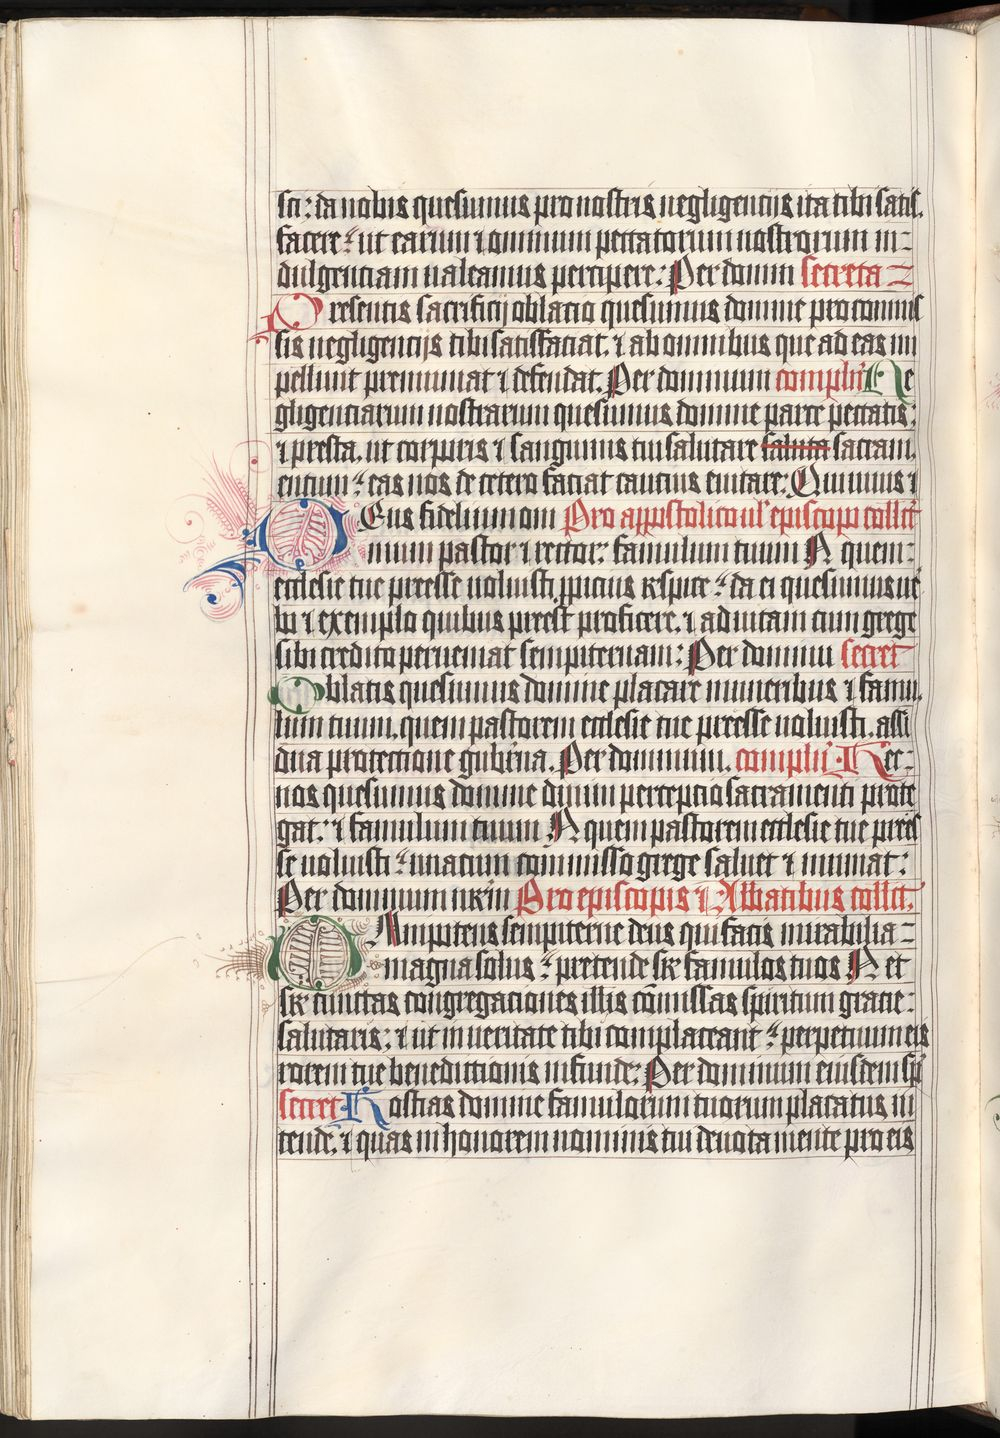 sci: da nobis quesumus pro nostris negligencijs ita tibi satis
facere: ut earum i omnium peccatorum nostrorum in-
dulgenciam ualeamus percipere: Per domin secreta
Presentis sacrificij oblatio quesumus domine pro commis
sis negligencijs tibi satisfaciat. i ab omnibus que ad eas im
pellunt premuniat i defendat. Per dominum complif Ne
gligenciarum nostrarum quesumus domine parce peccatis:
i presta. ut corporis i sanguinis tui salutare saluta sacram
entum: eas nos de cetero faciat caucius euitare: Qui uiuis i
DEus fidelium om Pro appostolico ul' episcopo collct
nium pastor i rector: famulum tuum N quem:
ecclesie tue preesse uoluisti. ppicius respice: da ei quesumus ue
bi i exemplo quibus preest proficere. i ad uitam cum grege
sibi credito perueniat sempiternam: Per dominum secret
Oblatis quesumus domine placare muneribus i famu
lum tuum. quem pastorem ecclesie tue preesse uoluisti. assi
dua protectione gub'na. Per dominum. complif Hec:
nos quesumus domine diuini percepcio sacramenti prote
gat: i famulum tuum N quem pastorem ecclesie tue prees
se uoluisti: unacum commisso grege saluet i muniat:
Per dominum nrm Pro episcopis i Abbatibus collct.
OMnipotens sempiterne deus qui facis mirabilia
magna solus: pretende sr famulos tuos N et
sr cunctas congregaciones illis comissas spiritum gracie:
salutaris: i ut in ueritate tibi complaceant: perpetuum eis
rorem tue benedictionis infunde: Per dominum eiusdem sp
secret Hostias domine famulorum tuorum placatus in
tende. i quas in honorem nominis tui deuota mente pro eis